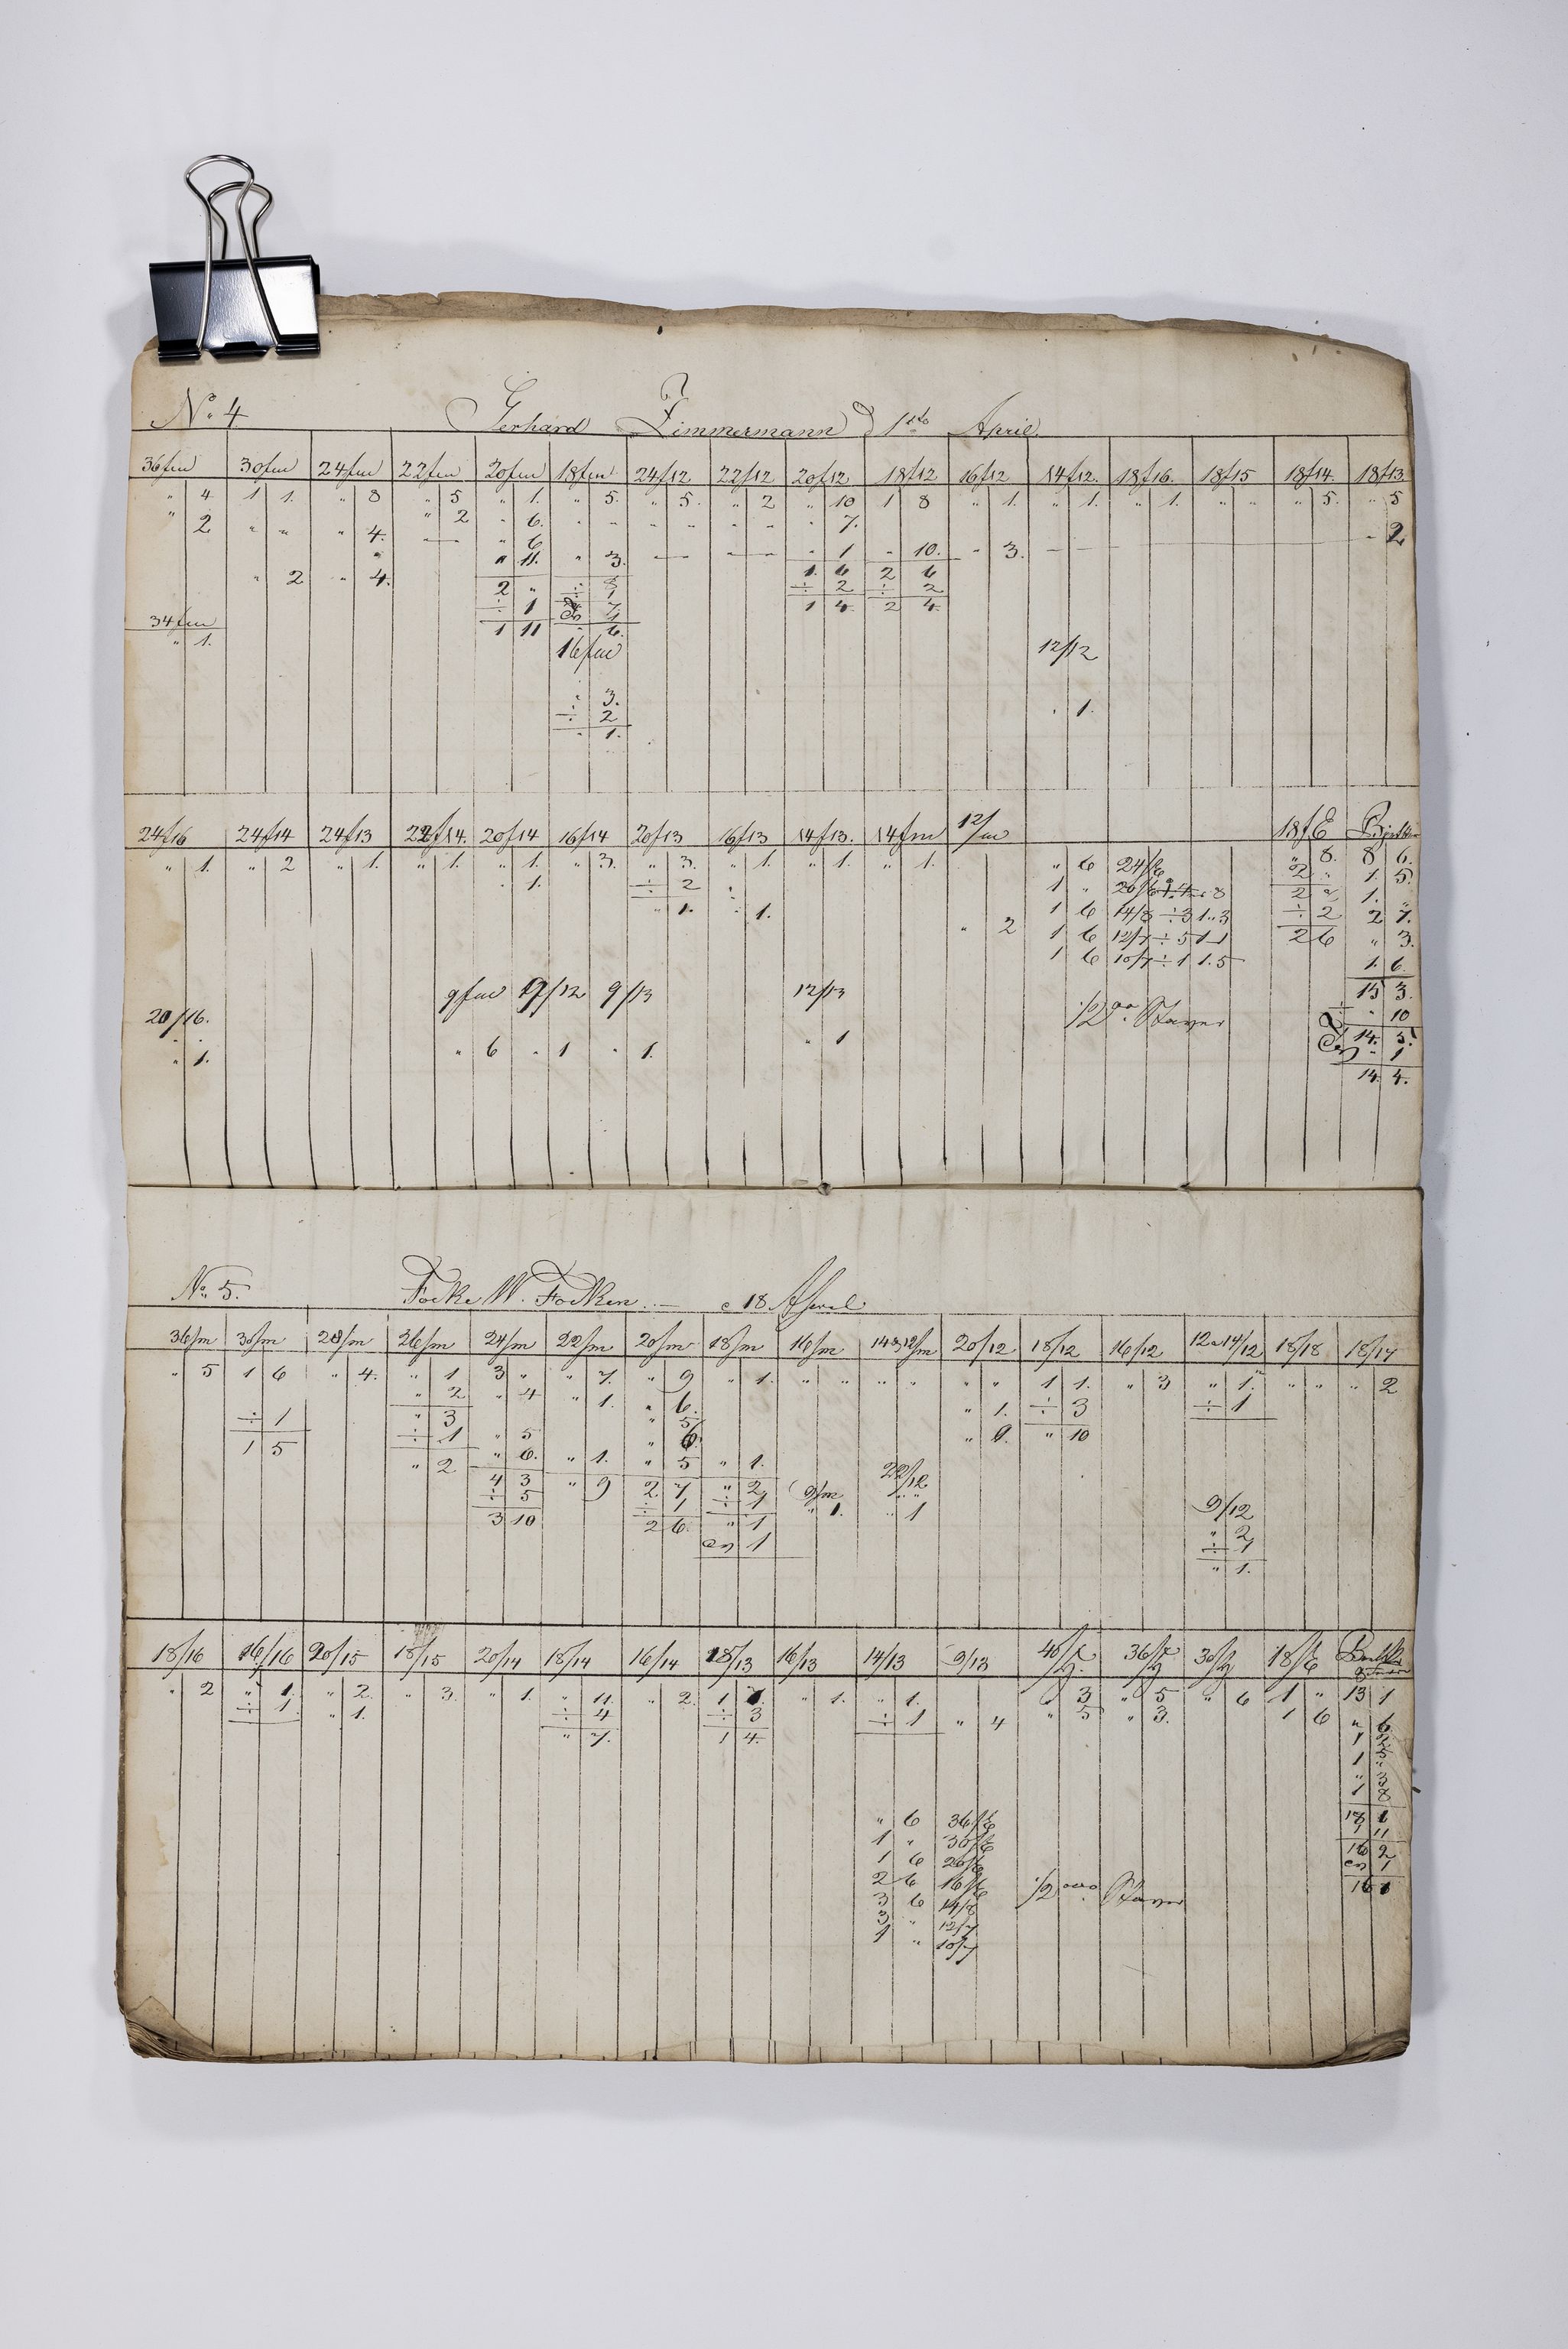 No. 4 Gerhard Zimmermann d 1ste April
36fm 30fm 24fm 22fm 20fm 18fm 24f12 22f12 20f12 18f12 16f12 14f12. 18f16. 18f15 18f14. 18f13.
" 4 1 1. " 8 " 5 " 1. " 5. " 5. " 2 " 10 1 8 " 1. " 1. " 1. " " " 5. " 5
" 2 " " " 4. " 2 " 6. " " " " " " " 7. " 2
" 6 " 1 " 10. " 3.
" 2 " 4. " 11. " 3. 1. 6 2 6
2 " ÷ 2 ÷ 2
÷ 1 1 4. 2 4.
34fm 1 11 " 6.
" 1. 16fm 12/12
" 3.
÷ 2 " 1.
" 1.
24f16 24f14 24f13 22f14. 20f14 16f14 20f13 16f13 14f13. 14fm 12/m 18fE
" 1. " 2 " 1. " 1. " 1. " 3. " 3. " 1. " 1. " 1. " 6 24/8 " 8. 8 6.
" 1. ÷ 2 1 " 2 " 1. 5.
" 1. " 1. 1 6 14/8 ÷ 3 1..3 ÷ 2 2 7.
" 2 1 6 12/7 ÷ 5 1 1 2 6 " 3.
1 6 10/7 ÷ 1 1.5 1. 6
9fm 9/12 9/13 12/13 15 3.
20/16. ½ Staver ÷ " 10
" 1. " 6 " 1 " 1. " 1 14. 5.
" 1
14. 4.
No. 5. Focke W. Focken. — 18 April
36/m 30/m 28/m 26/m 24/m 22/m 20/m 18/m 16/m 14 & 12/m 20/12 18/12 16/12 12 a 14/12 18/18 18/17
" 5 1 6 " 4. " 1 3 " " 7. " 9 " 1. " " " " " " 1 1. " 3 " 1. " " " 2
" 2 " 4 " 1. " 6. " 1. ÷ 3 ÷ 1
÷ 1 " 3 " 5 " 9. " 10
1 5 ÷ 1 " 5 " 6.
" 2 " 6. " 1. " 5 " 1. 22/12
4 3 " 9 2 7 " 2 9/m " "
÷ 5 ÷ 1 ÷ 1 " 1. " 1 9/12
3 10 2 6. " 1 " 2
en 1 ÷ 1
" 1.
18/16 16/16 20/15 18/15 20/14 18/14 16/14 18/13 16/13 14/13 9/13 18/E
" 2 " 1. " 2. " 3. " 1. " 11. " 2. " 1. " 1. " 3 " 5 " 6 1 " 13 1
÷ 1. " 1. ÷ 4 ÷ 3 ÷ 1 " 4 " 5 " 3. 1 6 " 6
" 7. 1 4.
" 6
1 " 18 1
1 6 1 11
2 6 16 2
3 6 ½ Staver en 1
3 " 12/7 16 1
1 " 10/7